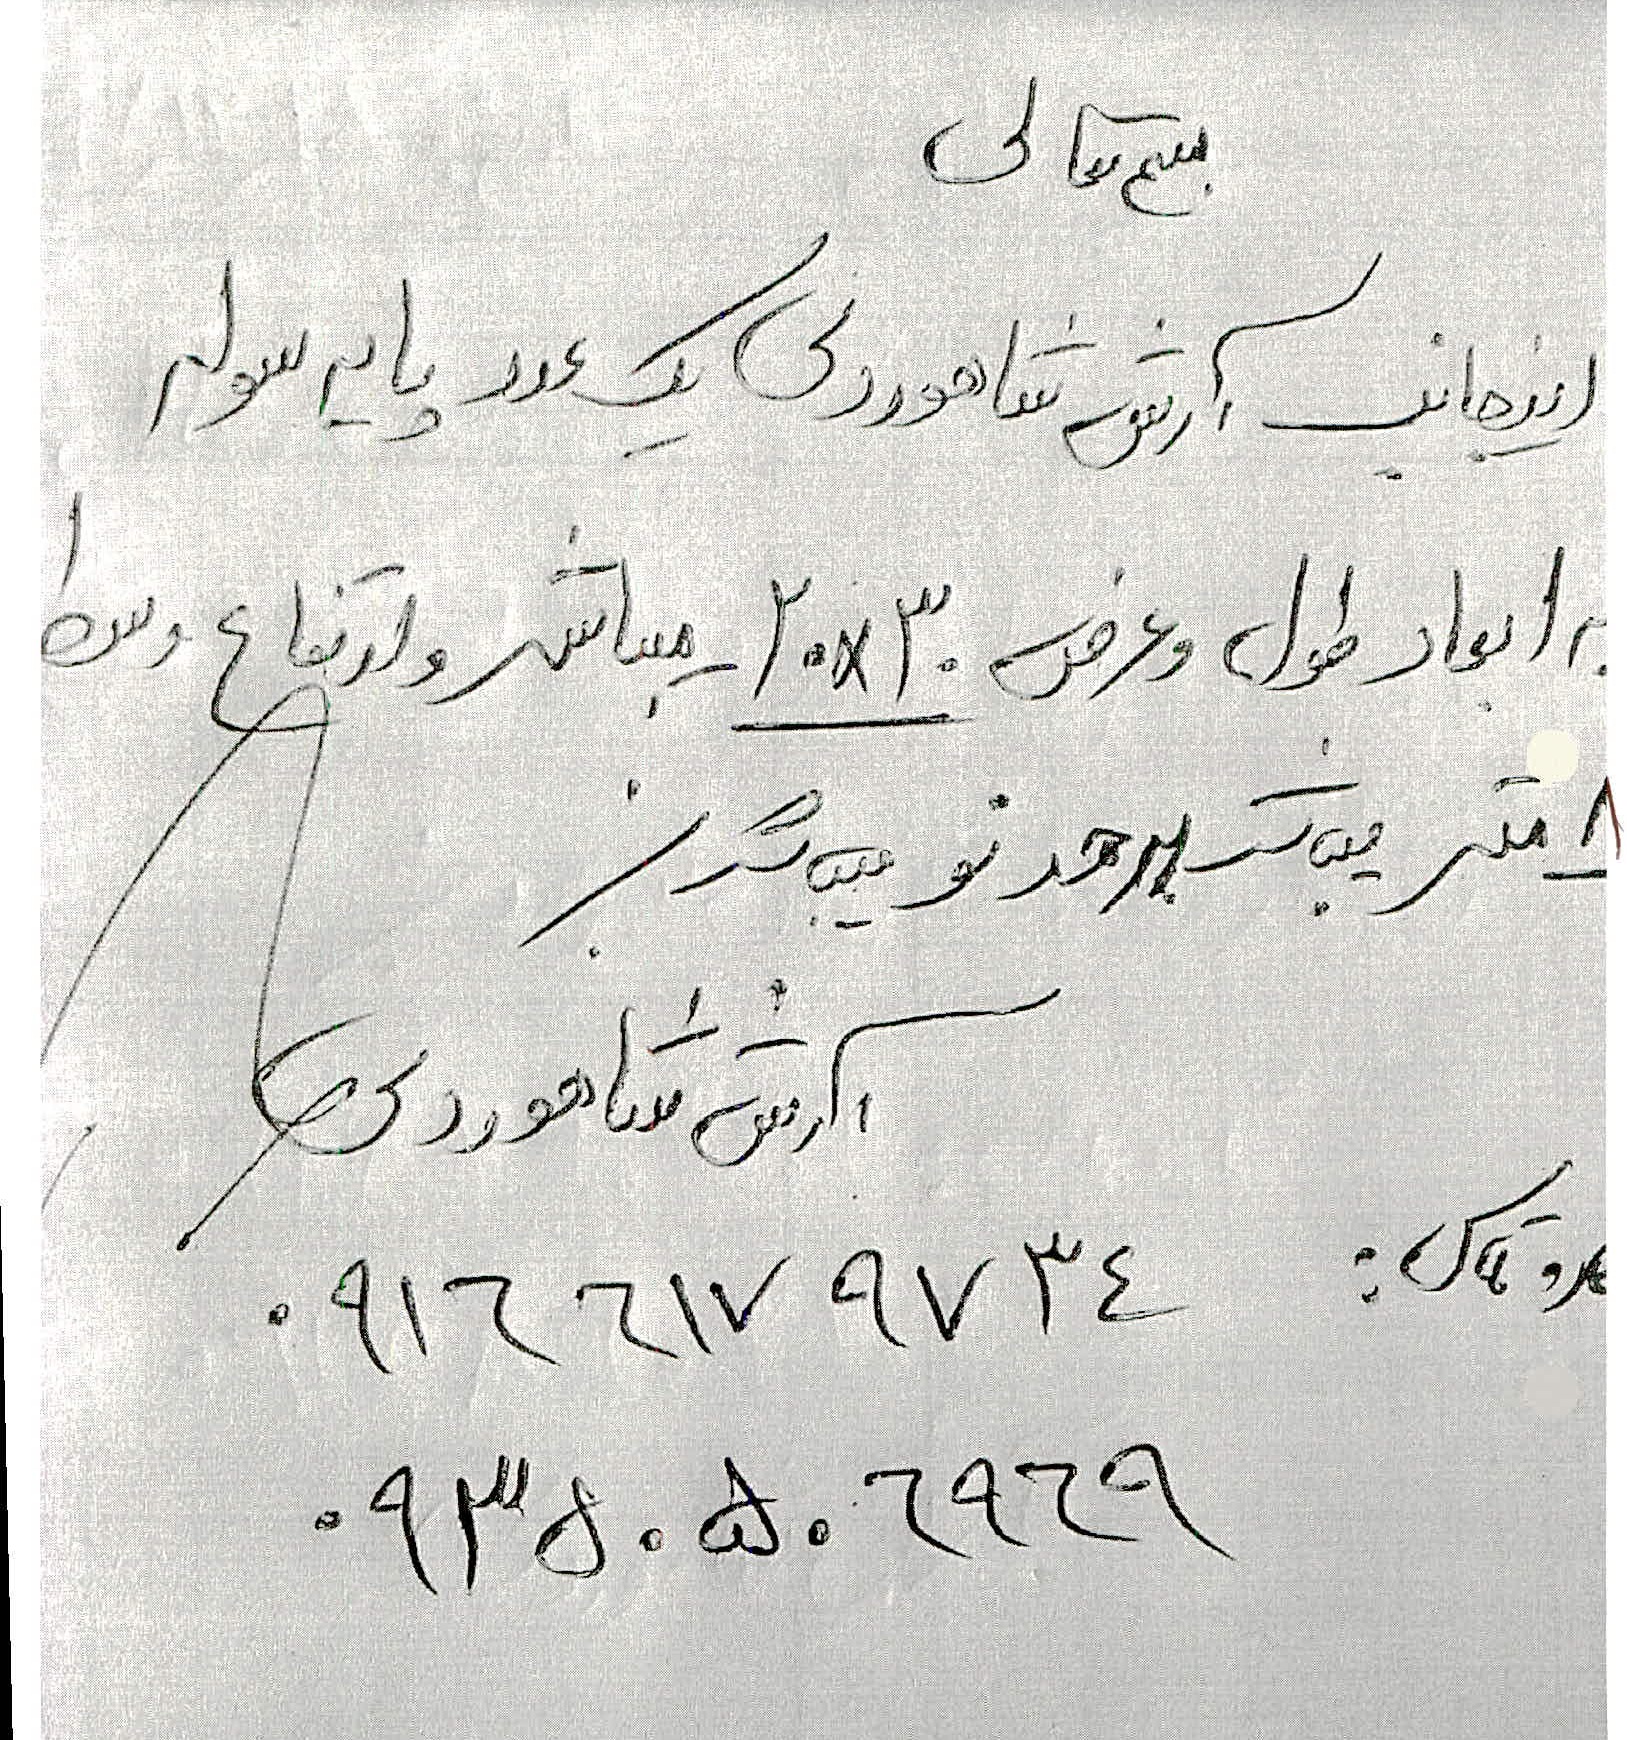 بسم تعالی
اینجانب آرش شاهوردی یک عدد پایه سوله
به ابعاد طول و عرض ۲۰x۳۰ میباشد و ارتفاع وسط
۸ متر میباشد نو میباشد
آرش شاهوردی
۰۹۱۶ ۶۱۷ ۹۷۳۴
۰۹۳۵۰۵۰۶۹۶۹